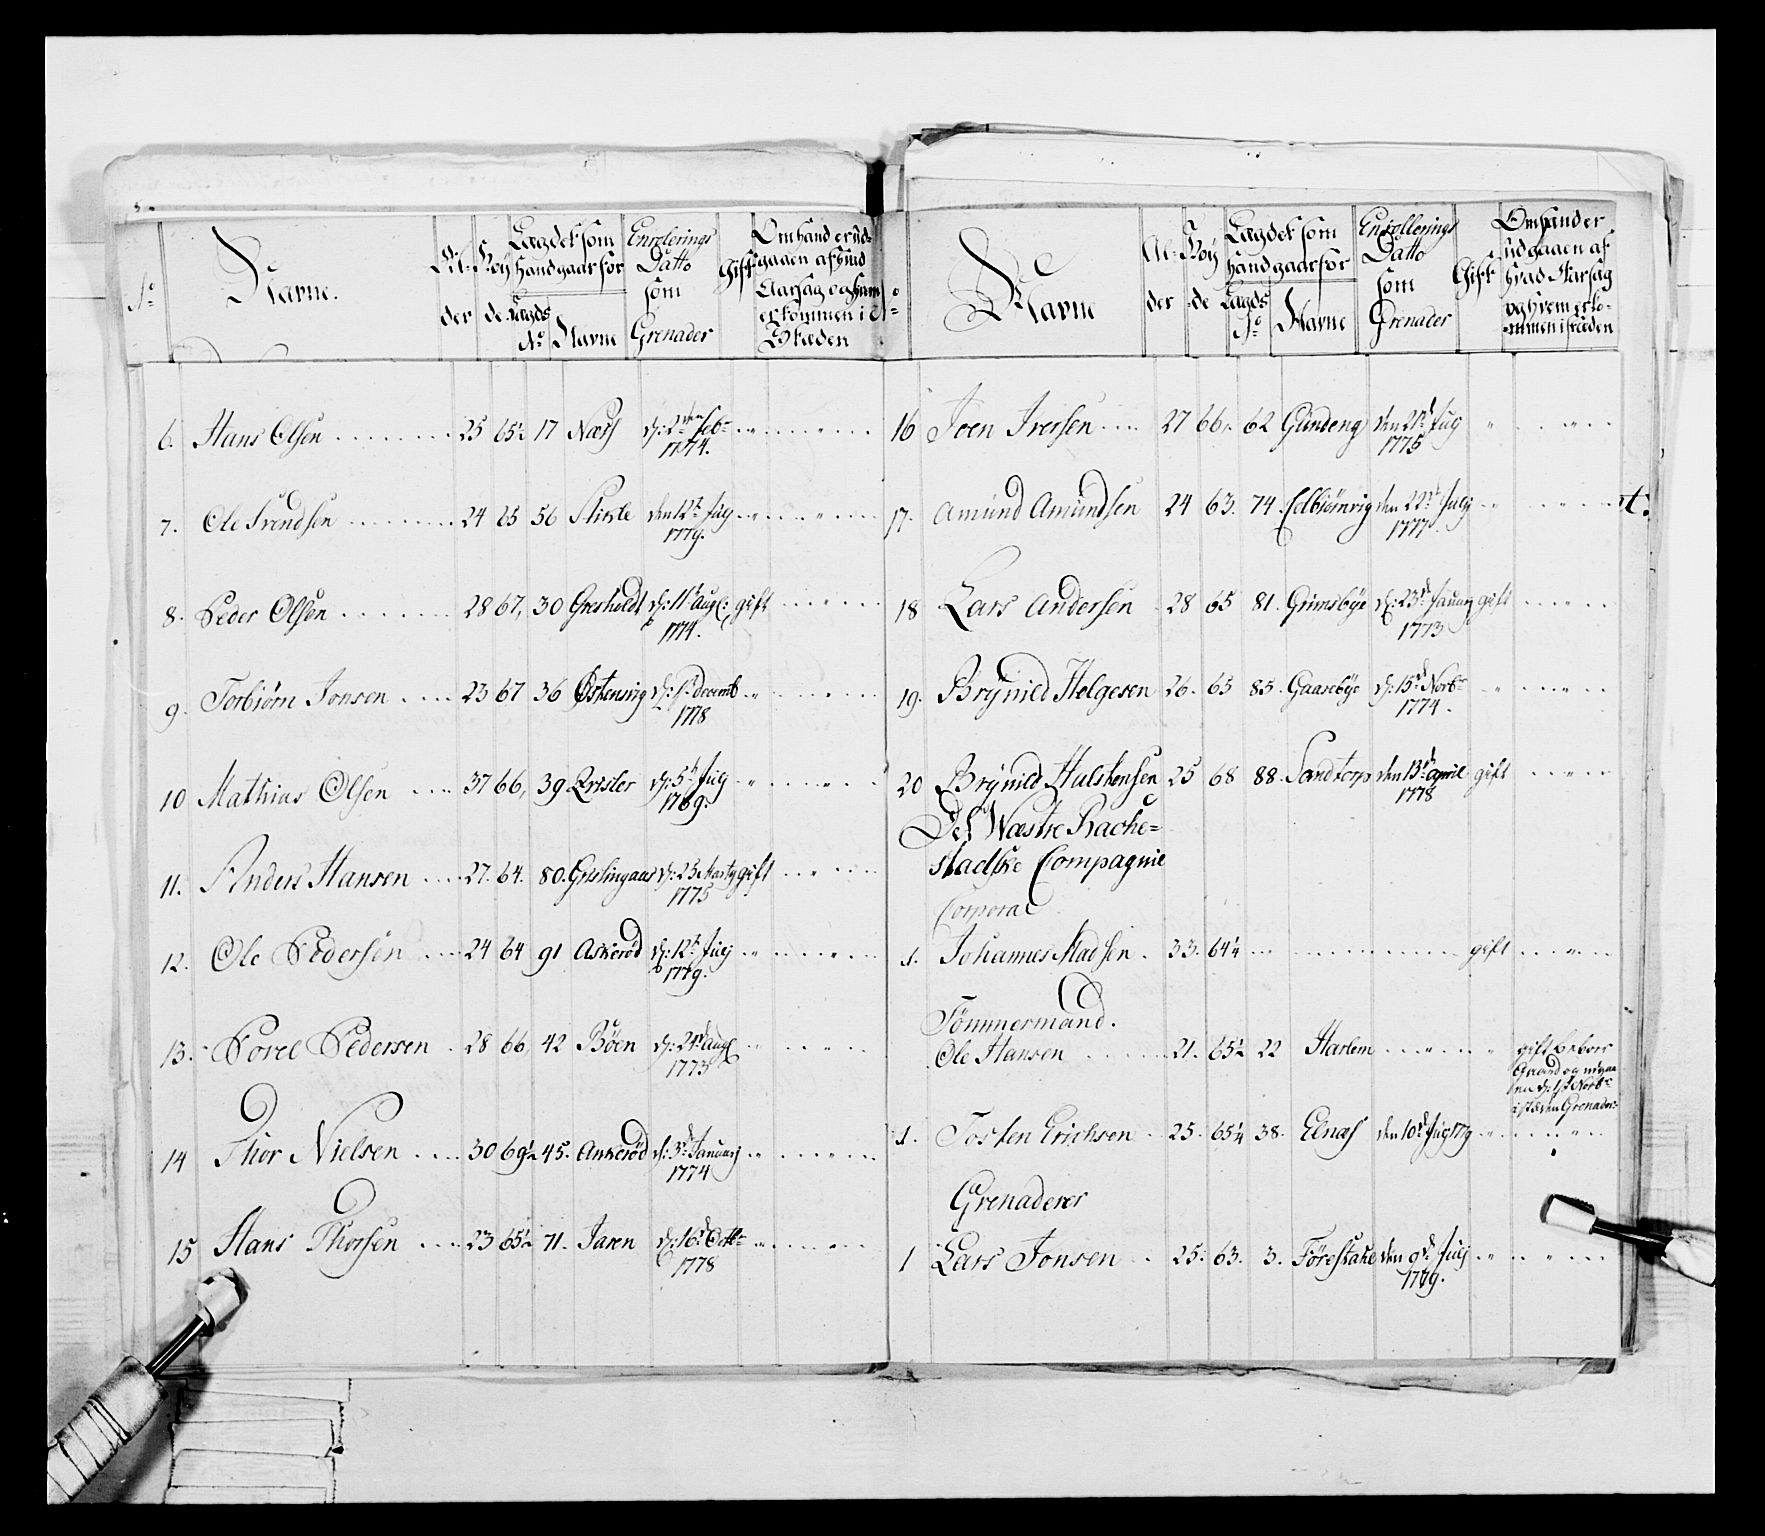 No
Navne.
Al-
der
Höy
de
Lagdet som
hand gaar for
Lagds
No Navne
Enrolerings
Datto
som
Grenader
Gift
Om hand er ud-
gaaen af hvad
Aarsag og hvem
er kommen i
Stæden
6. Hans Olsen 25 65½ 17 Næss d: 2den Feb:
1774.
7. Ole Svendsen 24 65 56 den 12te July
1779.
8. Peder Olsen 28 67, 30 Gresholdt d: 11te Aug: gift
1774.
9. Torbiörn Jonsen 23 67 36 Östensvig d: 1te Decemb
1778
10 Mathias Olsen 37 66, 39 d: 5te July
1769.
11. Anders Hansen 27. 64. 80. Grislingaas d: 23 Marty gift
1775
12. Ole Pedersen 24 64 91 Askeröd d: 12te July
1779.
13. Povel Pedersen 28 66, 42 Böen d: 24de Aug
1773
14 Thor Nielsen 30 69½ 45. Ankeröd d: 3de January
1774
15 Hans Thorsen 23 65½ 71. Jaren d: 16de Octbr
1778
No
Navne
Al-
der
Höy
de
Lagdet som
hand gaar for
Lagds
No Navne
Enrollerings
Datto
som
Grenader
Gift
Om hand er
udgaaen af
hvad Aarsag
og hvem er ko-
mmen i stæden
16 Joen Iversen 27 66. 62 Gundeng den 21de July
1775
17. Amund Amundsen 24 63. 74. Colbiörnvig den 22de July
1777.
18 Lars Andersen 28 65 81. Grimsbye d: 23de January gift
1773
19. Brynild Helgesen 26. 65 85. Gaasebye d: 15de Novbr
1774.
20 Brynild Halstensen 25 68 88. Sandtorp den 13de April gift
1778
Det Westre Rache-
stadske Compagnie
Corporal
1. Johannes Madsen 33. 64¼ gift
Tömmermand.
Ole Hansen 21. 65½ 22 Harlem gift beboer
Gaard og udgaa-
en d: 1te Novbr
i stæden Grenader
1. Tosten Erichsen 25. 65¼ 38. Elnæs den 10de July 1779
Grenaderer
1 Lars Jonsen 25. 63. 3. den 9de July
1779.